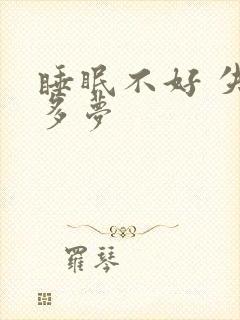 睡眠不好 失
多夢
羅琴